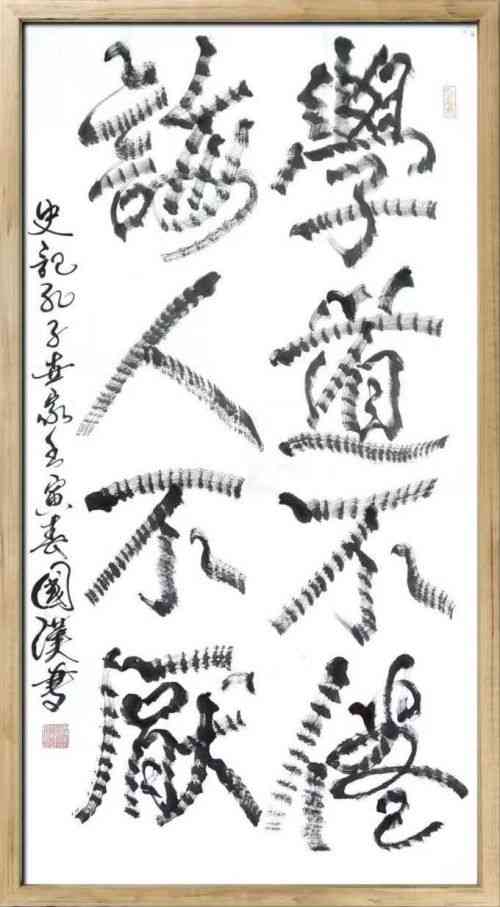 學道不倦
誨人不厭
史記孔子世家壬寅春國漢書